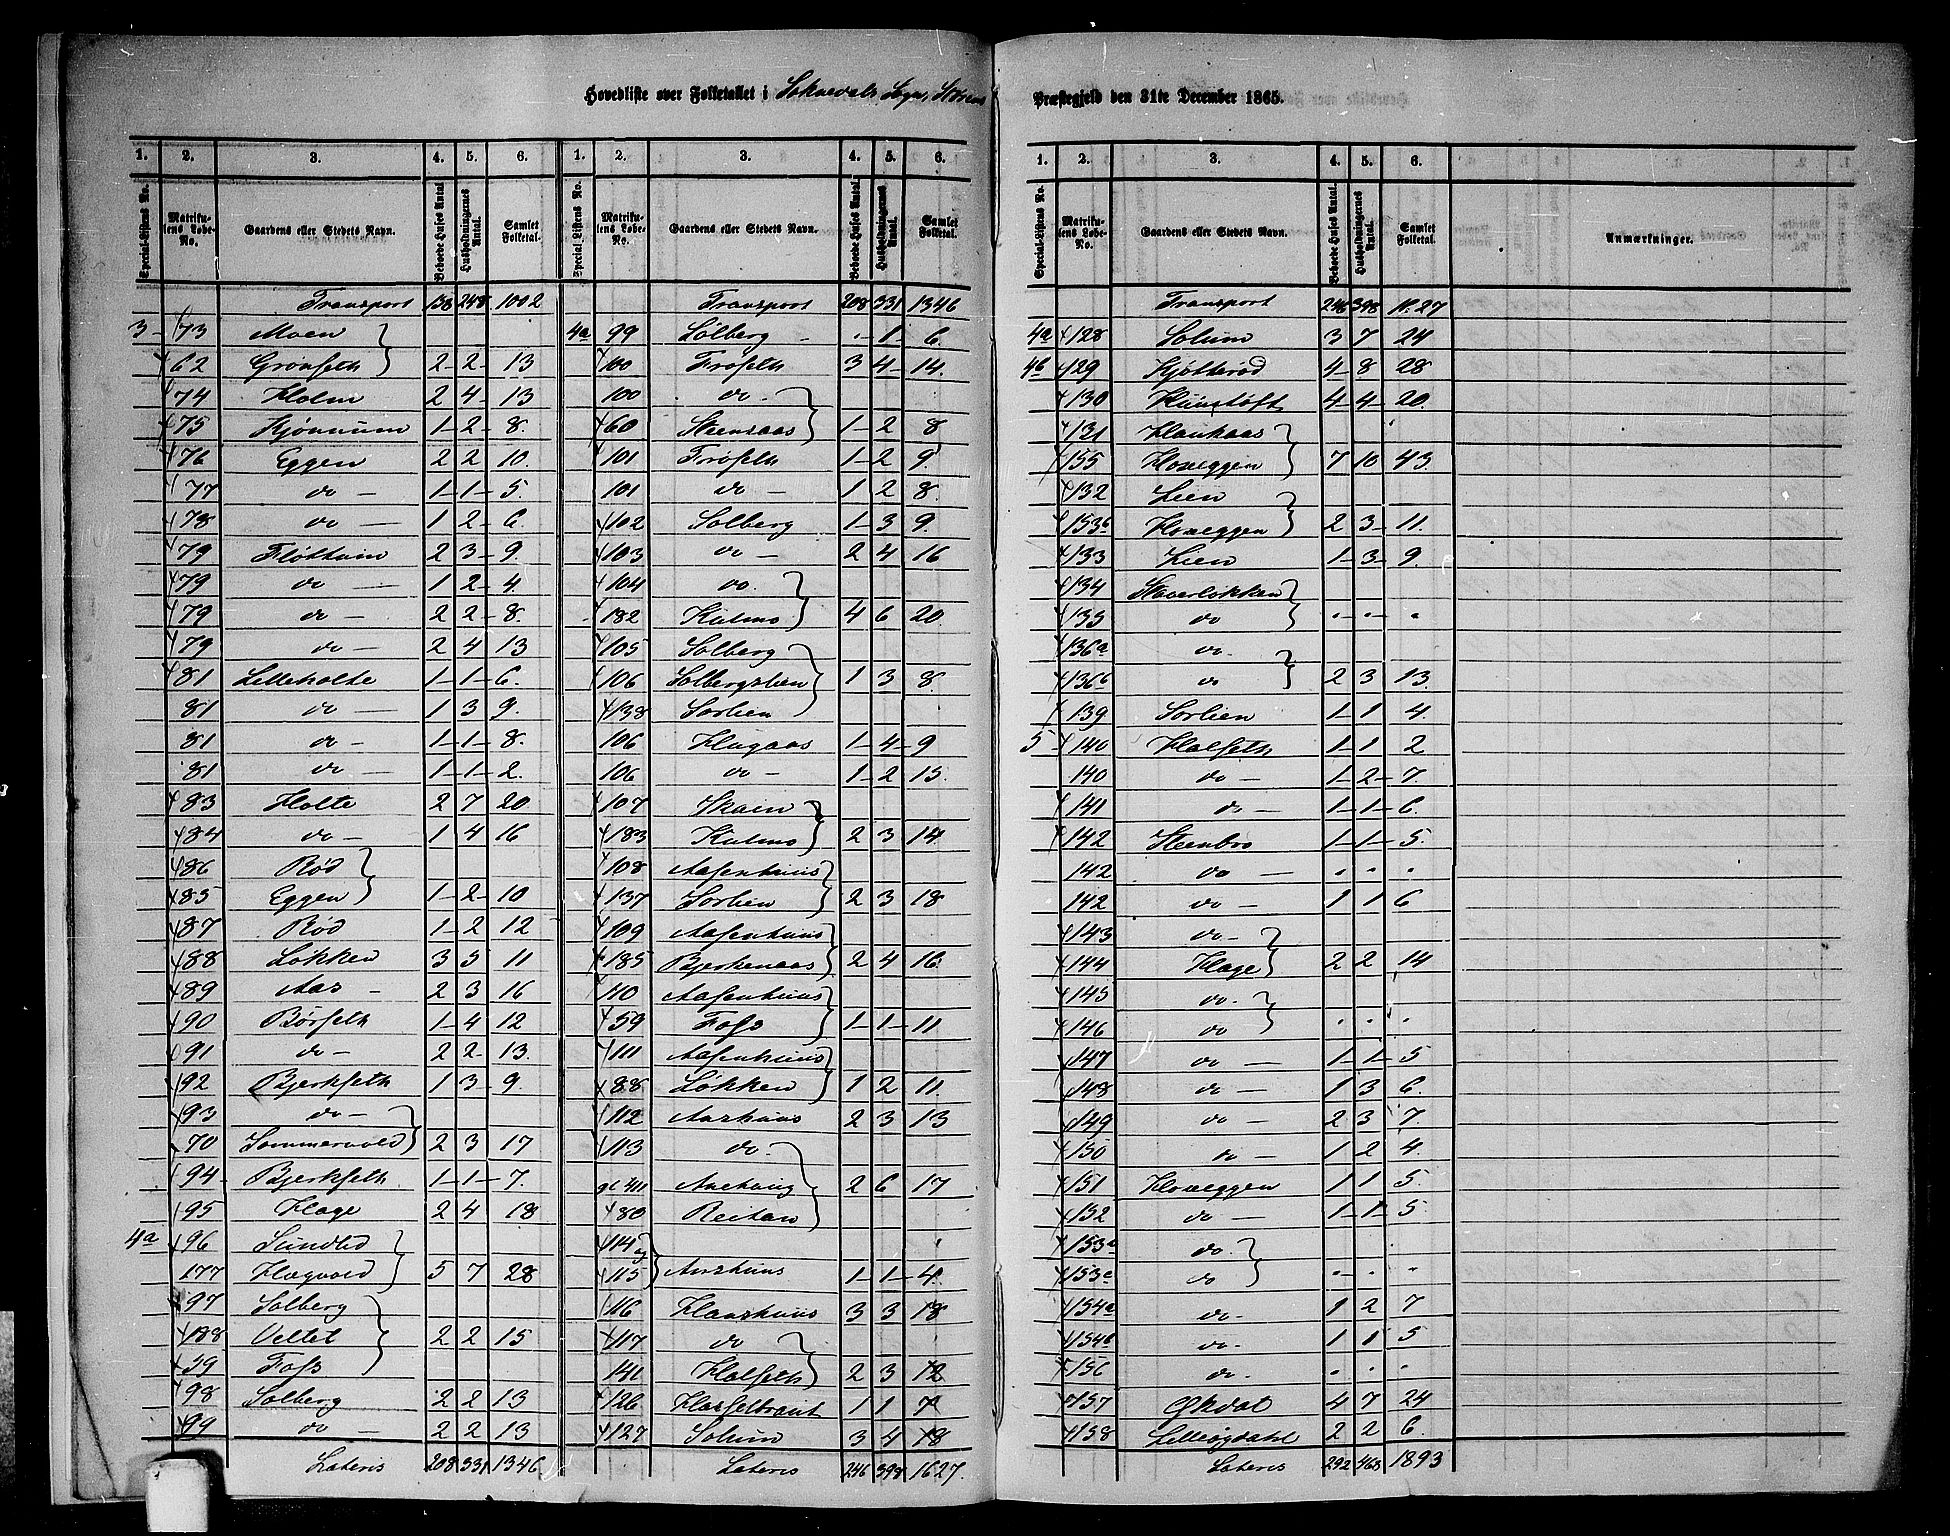 Hovedliste over Folketallet i Soknedals Sogn, Størens Præstegjeld den 31te December 1865.
1. 2. 3. 4. 5. 6.
Special-Listens No. Matrikulens Løbe-No. Gaardens eller Stedets Navn. Beboede Huses Antal. Husholdningernes Antal. Samlet Folketal.
Transport 158 248 1002
3 73 Moen
62 Grønseth 2 2 13
74 Holm 2 4 13
75 Kjønnum 1 2 8.
76 Eggen 2 2 10.
77 do 1 1 5.
78 do 1 2 6.
79 Fløttum 2 3 9.
79 do 1 2 4.
79 do 2 2 8.
79 do 2 4 13
81 Lilleholte 1 1 6.
81 do 1 3 9.
81 do 1 1 8.
81 do 1 1 2.
83 Holte 2 7 20
84 do 1 4 16
86 Rød
85 Eggen 1 2 10
87 Rød 1 2 12
88 Løkken 3 5 11
89 Aas 2 3 16
90 Børseth 1 4 12
91 do 2 2 13.
92 Bjerkseth 1 3 9.
93 do
70 Sommervold 2 3 17
94 Bjerkseth 1 1 7.
95 Hage 2 4 18
4a 96 Sundlid
177 Hægvold 5 7 28
97 Solberg
188 Veltet 2 2 15
59 Foss
98 Solberg 2 2 13
99 do 2 2 13
Lateris 208 331 1346
1. 2. 3. 4. 5. 6.
Special Listens No. Matrikulens Løbe-No. Gaardens eller Stedets Navn. Beboede Huses Antal. Husholdningernes Antal. Samlet Folketal.
Transport 208 331 1346
4a 99 Solberg - 1 6.
100 Frøseth 3 4 14.
100 do
60 Steensaas 1 2 8
101 Frøseth 1 2 9.
101 do 1 2 8.
102 Solberg 1 3 9.
103 do 2 4 16
104 do
182 Kulmo 4 6 20.
105 Solberg
106 Solbergslien 1 3 8.
138 Sorlien
106 Haugaas 1 4 9
106 do 1 2 15.
107 Skoien
183 Kulmo 2 3 14
108 Aasenhuus
137 Sorlien 2 3 18
109 Aasenhuus
185 Bjerkenaas 2 4 16.
110 Aasenhuus
59 Foss 1 1 11
111 Aasenhuus
88 Løkken 1 2 11.
112 Aashuus 2 3 13
113 do
Aashaug 2 6 17
80 Reitan
114 og
115 Aashuus 1 1 4.
116 Haashuus 3 3 18
117 do
141 Halseth 2 3 12
126 1 1 7
127 Solum 3 4 18
Lateris 246 398 1627.
1. 2. 3. 4. 5. 6.
Special-Listens No. Matrikulens Løbe-No. Gaardens eller Stedets Navn. Beboede Huses Antal. Husholdningernes Antal. Samlet Folketal. Anmærkninger.
Transport 246 398 1627
4a 128 Solum 3 7 24
4b 129 Kjøtterød 4 8 28
130 4 4 20.
131 Haukaas
155 Hoveggen 7 10 43.
132 Lien
153b Hoveggen 2 3 11.
133 Lien 1 3 9.
134 Staverløkken
135 do
136a do
136b do 2 3 13.
139 Sorlien 1 1 4.
5 140 Halseth 1 1 2
140 do 1 2 7.
141 do 1 1 6.
142 Steenbro 1 1 5.
142 do
142 do 1 1 6
143 do
144 Hage 2 2 14
145 do
146 do
147 do 1 1 5
148 do 1 3 6.
149 do 2 3 7.
150 do 1 2 4.
151 Hoveggen 1 1 5.
152 do 1 1 5.
153a do
153c do
154a do 1 2 7
154b do 1 1 5
156 do
157 Økdal 4 7 24
158 Lilleøgdahl 2 2 6.
Lateris 292 463 1893